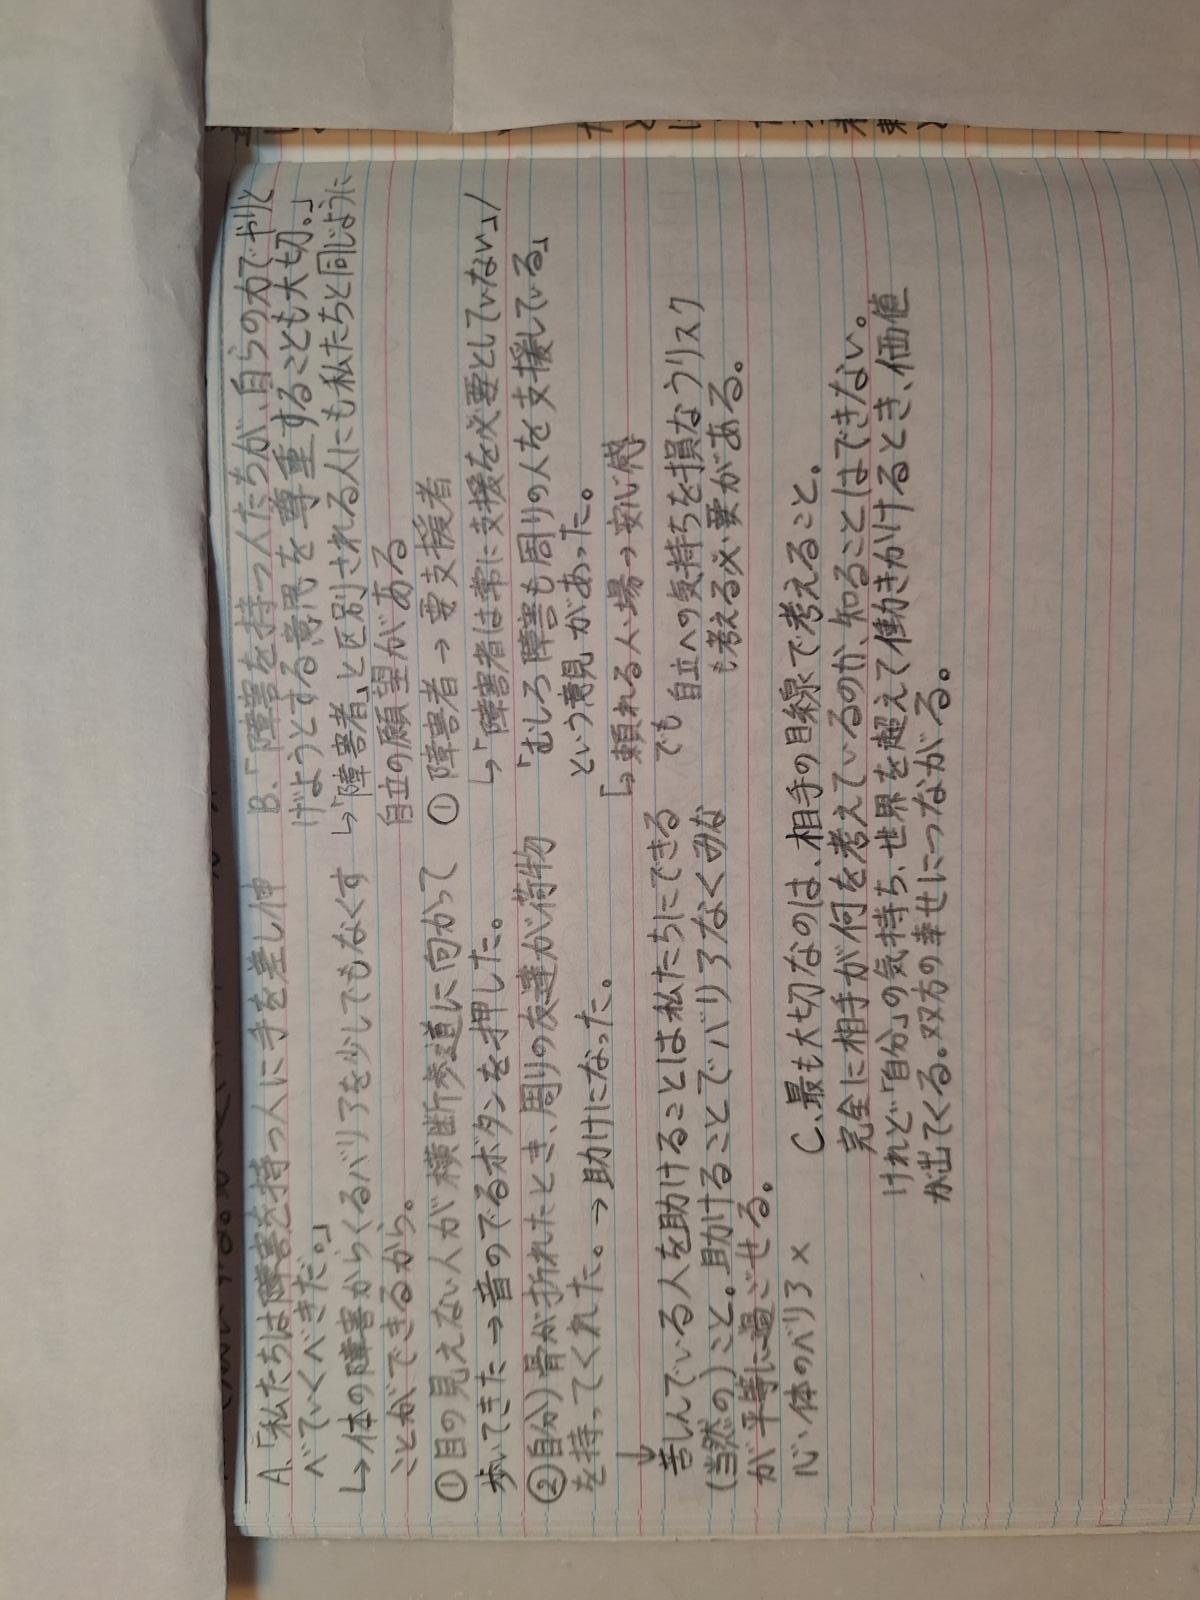 A.「私たちは障害を持つ人に手を差し伸
べていくべきだ。」
↳体の障害からくるバリアを少しでもなくす
ことができるから。
①目の見えない人が横断歩道に向かって
歩いてきた→音のでるボタンを押した。
②(自分)骨が折れたとき、周りの友達が荷物
を持ってくれた。→助けになった。
↓
苦しんでいる人を助けることは私たちにできる
(当然の)こと。助けることでバリアなくみな
が平等に過ごせる。
心・体のバリア×
B.「障害を持つ人たちが、自らの力でやりと
げようとする意思を尊重することも大切。」
↳「障害者」と区別される人にも私たちと同じように
自立の願望がある
①障害者→要支援者
↳「障害者は常に支援を必要としていない」/
「むしろ障害も周りの人を支援している」
という意見があった。
↳頼れる人・場→安心感
でも 自立への気持ちを損なうリスク
も考える必要がある。
C.最も大切なのは、相手の目線で考えること。
完全に相手が何を考えているのか、知ることはできない。
けれど「自分」の気持ち、世界を超えて働きかけるとき、価値
が出てくる。双方の幸せにつながる。